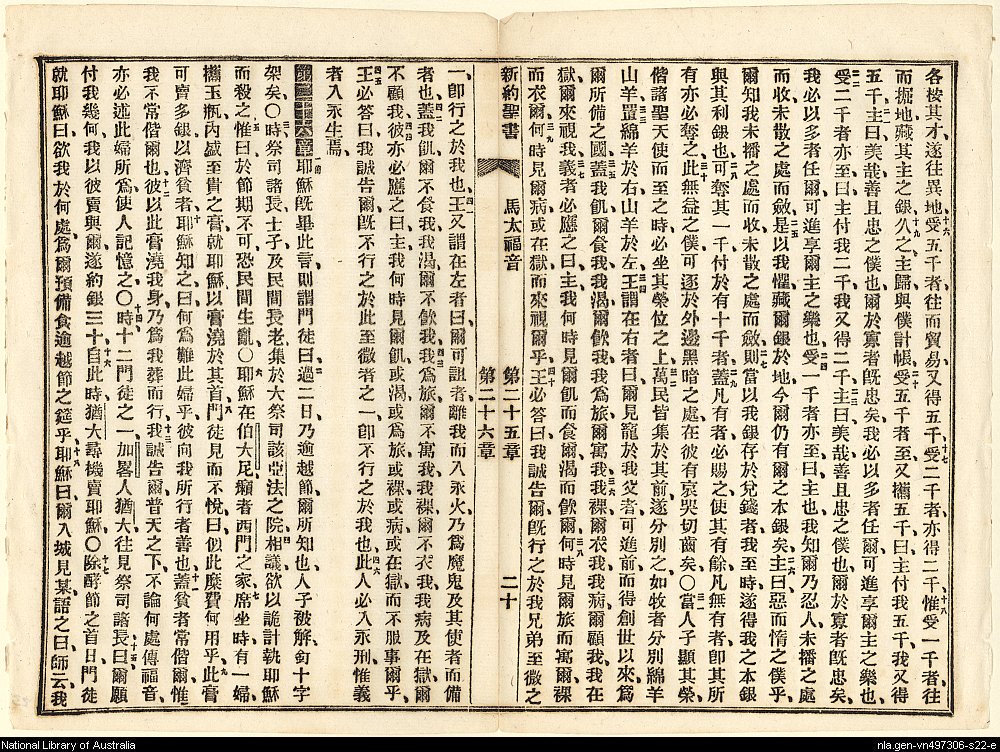 各按其才、遂往異地、受五千者、往而貿易、又得五千、受二千者、亦得二千、惟受一千者、往
而掘地藏其主之銀、久之、主歸與僕計帳、受五千者至、又攜五千曰、主付我五千、我又得
五千、主曰、美哉、善且忠之僕也、爾於寡者旣忠矣、我必以多者任爾、可進享爾主之樂也、
受二千者亦至曰、主付我二千、我又得二千、主曰、美哉、善且忠之僕也、爾於寡者旣忠矣、
我必以多者任爾、可進享爾主之樂也、受一千者亦至曰、主也、我知爾乃忍人、未播之處
而收、未散之處而斂、是以我懼、藏爾銀於地、今爾仍有爾之本銀矣、主曰、惡而惰之僕乎、
爾知我未播之處而收、未散之處而斂、則當以我銀存於兌錢者、我至時、遂得我之本銀
與其利銀也、可奪其一千、付於有十千者、蓋凡有者、必賜之、使其有餘、凡無有者、卽其所
有亦必奪之、此無益之僕、可逐於外邊黑暗之處、在彼有哀哭切齒矣○當人子顯其榮
偕諸聖天使而至之時、必坐其榮位之上、萬民皆集於其前、遂分別之、如牧者分別綿羊
山羊、置綿羊於右、山羊於左、王謂在右者曰、爾見寵於我父者、可進前、而得創世以來爲
爾所備之國、蓋我飢爾食我、我渴爾飮我、我爲旅爾寓我、我裸爾衣我、我病爾顧我、我在
獄爾來視我、義者必應之曰、主、我何時見爾飢而食爾、渴而飮爾、何時見爾旅而寓爾、裸
而衣爾、何時見爾病、或在獄而來視爾乎、王必答曰、我誠告爾、旣行之於我兄弟至微之
新約聖書 馬太福音 第二十五章 第二十六章 二十
一、卽行之於我也、王又謂在左者曰、爾可詛者、離我而入永火、乃爲魔鬼及其使者而備
者也、蓋我飢爾不食我、我渴爾不飮我、我爲旅爾不寓我、我裸爾不衣我、我病及在獄、爾
不顧我、彼亦必應之曰、主、我何時見爾飢、或渴、或爲旅、或裸、或病、或在獄、而不服事爾乎、
王必答曰、我誠告爾、旣不行之於此至微者之一、卽不行之於我也、此人必入永刑、惟義
者入永生焉、
第二十六章 耶穌旣畢此言、則謂門徒曰、過二日乃逾越節、爾所知也、人子被解釘十字
架矣○時祭司諸長、士子及民間長老、集於大祭司該亞法之院、相議欲以詭計執耶穌
而殺之、惟曰、於節期不可、恐民間生亂○耶穌在伯大尼、癩者西門之家、席坐時、有一婦
攜玉瓶、內盛至貴之膏、就耶穌、以膏澆於其首、門徒見而不悅曰、似此糜費何用乎、此膏
可賣多銀、以濟貧者、耶穌知之曰、何爲難此婦乎、彼向我所行者善也、蓋貧者常偕爾、惟
我不常偕爾也、彼以此膏澆我身、乃爲我葬而行、我誠告爾、普天之下、不論何處傳福音、
亦必述此婦所爲、使人記憶之○時十二門徒之一、加畧人猶大、往見祭司諸長曰、爾願
付我幾何、我以彼賣與爾、遂約銀三十、自此時、猶大尋機賣耶穌○除酵節之首日、門徒
就耶穌曰、欲我於何處、爲爾預備食逾越節之筵乎、耶穌曰、爾入城見某、語之曰、師云、我
National Library of Australia
nla.gen-vn497306-s22-e